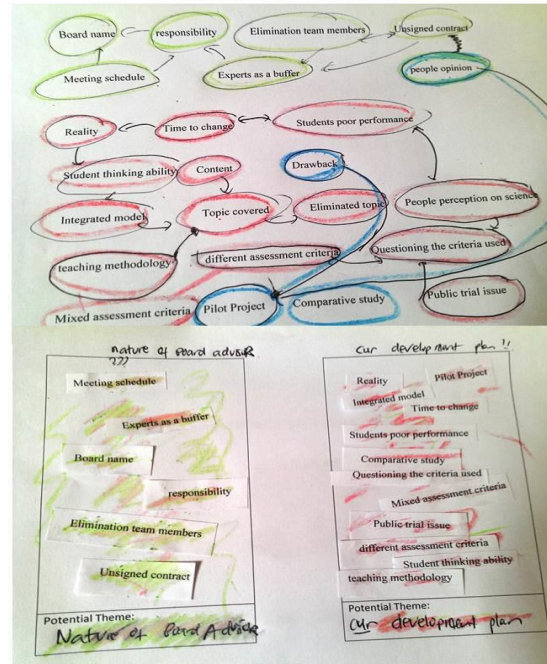 Board name
responsibility
Elimination team members
Unsigned contract
Meeting schedule
Experts as a buffer
people opinion
Reality
Time to change
Students poor performance
Student thinking ability
Content
Drawback
Integrated model
Topic covered
Eliminated topic
People perception on science
teaching methodology
different assessment criteria
Questioning the criteria used
Mixed assessment criteria
Pilot Project
Comparative study
Public trial issue
nature of Board advisor
???
Meeting schedule
Experts as a buffer
Board name
responsibility
Elimination team members
Unsigned contract
Potential Theme:
Nature of Board Advisor
cur development plan !!
Reality
Pilot Project
Integrated model
Time to change
Students poor performance
Comparative study
Questioning the criteria used
Mixed assessment criteria
Public trial issue
different assessment criteria
Student thinking ability
teaching methodology
Potential Theme:
cur development plan